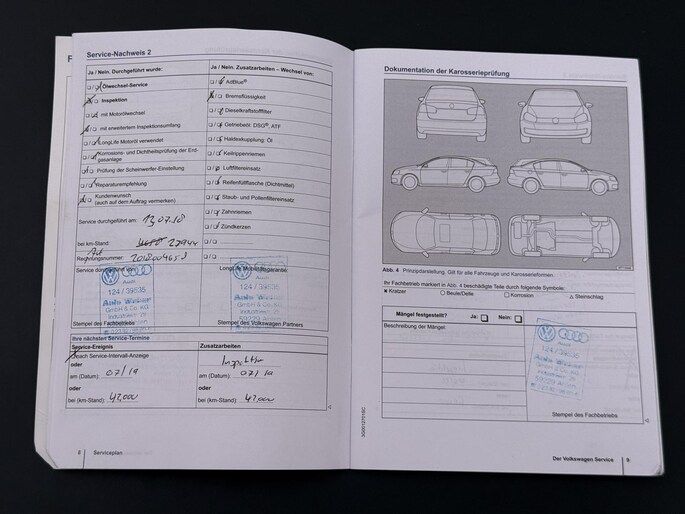 Service-Nachweis 2
Ja / Nein. Durchgeführt wurde:
Ölwechsel-Service
Inspektion
mit Motorölwechsel
mit erweitertem Inspektionsumfang
LongLife Motoröl verwendet
Korrosions- und Dichtheitsprüfung der Erdgasanlage
Prüfung der Scheinwerfer-Einstellung
Reparaturempfehlung
Kundenwunsch
(auch auf dem Auftrag vermerken)
Service durchgeführt am: 13.07.18
bei km-Stand: 22944
Rechnungsnummer: 2018004658
Service durchgeführt von:
Audi
124 / 39536
Auto Weber
GmbH & Co. KG
Stempel des Fachbetriebs
Ja / Nein. Zusatzarbeiten – Wechsel von:
AdBlue®
Bremsflüssigkeit
Dieselkraftstofffilter
Getriebeöl: DSG®, ATF
Haldexkupplung: Öl
Keilrippenriemen
Luftfiltereinsatz
Reifenfüllflasche (Dichtmittel)
Staub- und Pollenfiltereinsatz
Zahnriemen
Zündkerzen
LongLife Mobilitätsgarantie
Audi
124 / 39536
Auto Weber
GmbH & Co. KG
Stempel des Volkswagen Partners
Ihre nächsten Service-Termine
Service-Ereignis
nach Service-Intervall-Anzeige
oder
am (Datum): 07/19
oder
bei (km-Stand): 42.000
Zusatzarbeiten
Inspektion
am (Datum): 07/19
oder
bei (km-Stand): 42.000
8 Serviceplan
Dokumentation der Karosserieprüfung
Abb. 4 Prinzipdarstellung. Gilt für alle Fahrzeuge und Karosserieformen.
Ihr Fahrzeug markiert in Abb. 4 beschädigte Teile durch folgende Symbole:
× Kratzer ○ Beule/Delle □ Korrosion △ Steinschlag
Mängel festgestellt? Ja: Nein:
Beschreibung der Mängel:
Audi
124 / 39536
Auto Weber
GmbH & Co. KG
Stempel des Fachbetriebs
Der Volkswagen Service 9